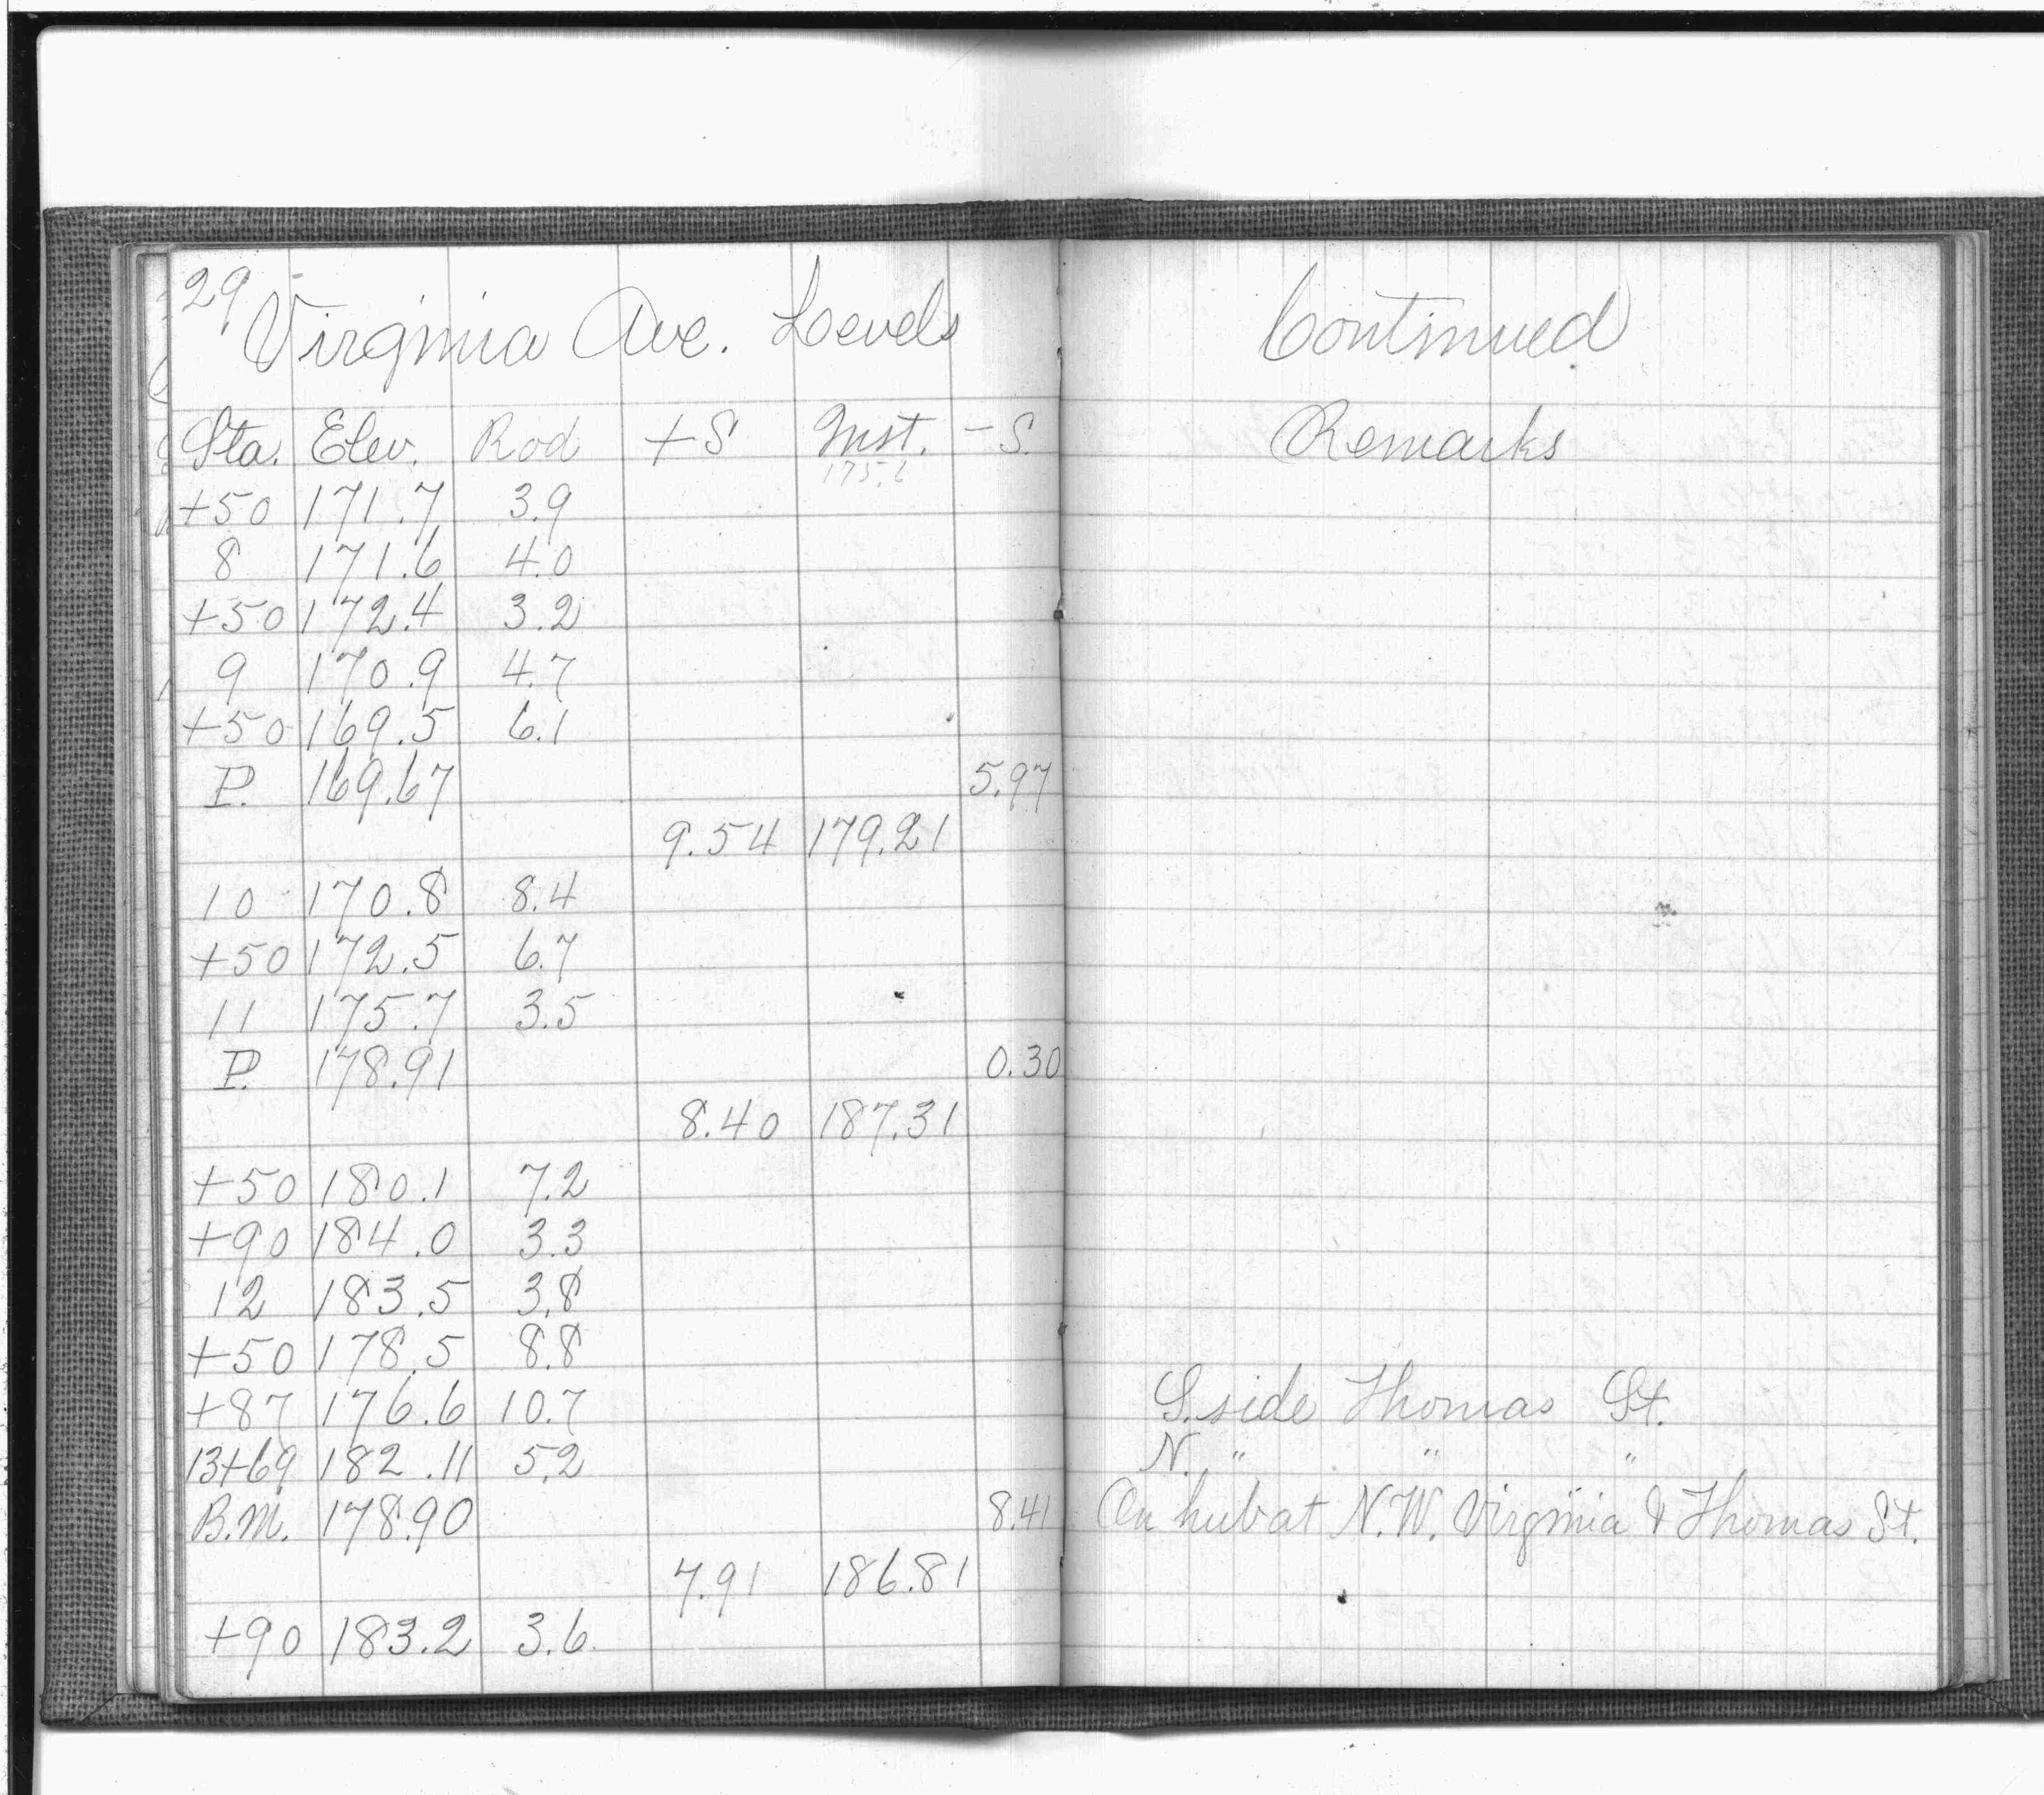 29
Virginia Ave. Levels Continued
Sta. Elev. Rod +S Inst. -S. Remarks
175.6
+50 171.7 3.9
8 171.6 4.0
+50 172.4 3.2
9 170.9 4.7
+50 169.5 6.1
P. 169.67 5.97
9.54 179.21
10 170.8 8.4
+50 172.5 6.7
11 175.7 3.5
P. 178.91 0.30
8.40 187.31
+50 180.1 7.2
+90 184.0 3.3
12 183.5 3.8
+50 178.5 8.8
+87 176.6 10.7 S. side Thomas St.
13+69 182.11 5.2 N. " " "
B.M. 178.90 8.41 On hub at N.W. Virginia & Thomas St.
7.91 186.81
+90 183.2 3.6